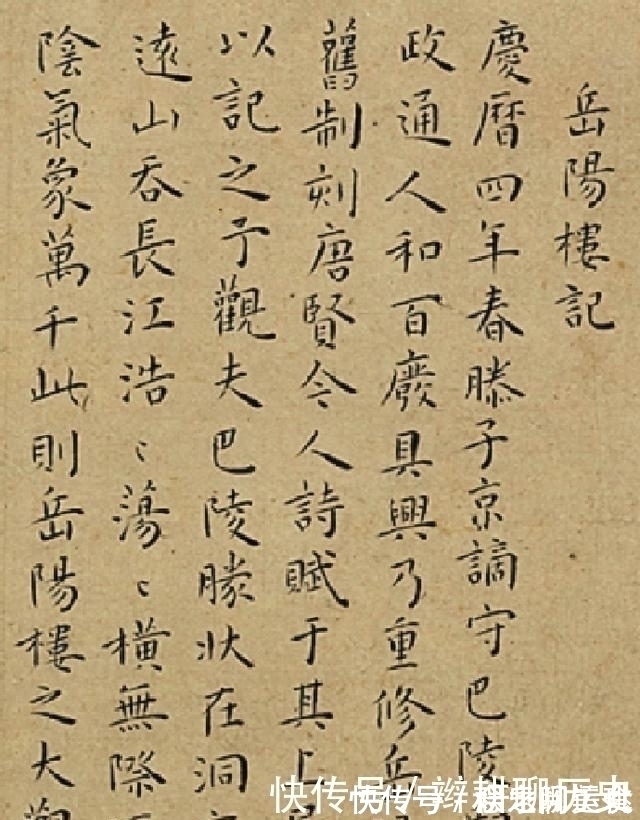 岳陽樓記
慶曆四年春滕子京謫守巴陵
政通人和百廢具興乃重修岳
舊制刻唐賢今人詩賦于其上
以記之予觀夫巴陵勝狀在洞
遠山吞長江浩〻蕩〻橫無際
陰氣象萬千此則岳陽樓之大觀
快传号/辫耕聊历史
快传号/